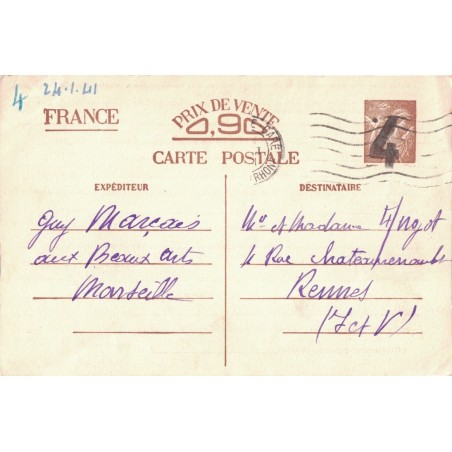 4 24.1.41
FRANCE
PRIX DE VENTE
0,90
GARE
RHÔNE
CARTE POSTALE
4
EXPÉDITEUR
Guy Marçais
aux Beaux Arts
Marseille
DESTINATAIRE
Mr et Madame
4 Rue Chateaurenault
Rennes
(I et V)